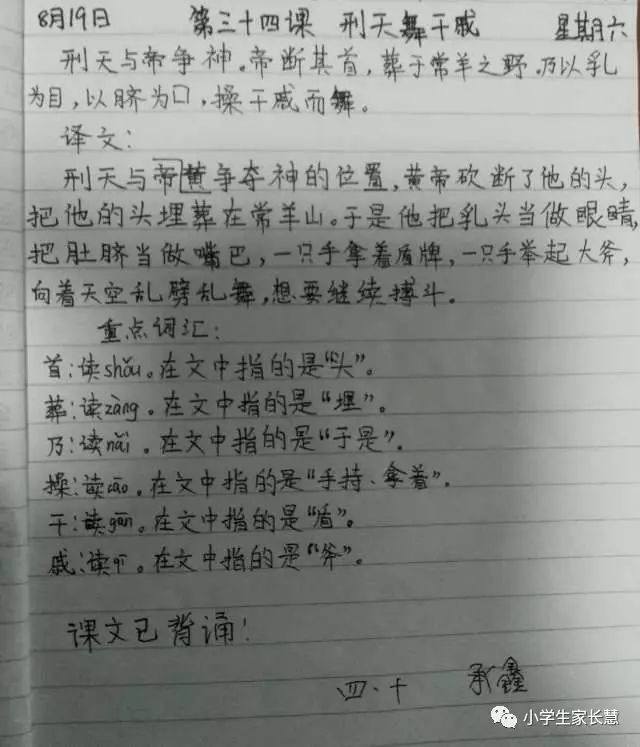 8月19日 第三十四课 刑天舞干戚 星期六
刑天与帝争神。帝断其首，葬于常羊之野。乃以乳
为目，以脐为口，操干戚而舞。
译文：
刑天与帝黄争夺神的位置，黄帝砍断了他的头，
把他的头埋葬在常羊山。于是他把乳头当做眼睛，
把肚脐当做嘴巴，一只手拿着盾牌，一只手举起大斧，
向着天空乱劈乱舞，想要继续搏斗。
重点词汇：
首：读shǒu。在文中指的是“头”。
葬：读zàng。在文中指的是“埋”。
乃：读nǎi。在文中指的是“于是”。
操：读cāo。在文中指的是“手持、拿着”。
干：读gān。在文中指的是“盾”。
戚：读qī。在文中指的是“斧”。
课文已背诵！
四·十 承鑫
小学生家长慧